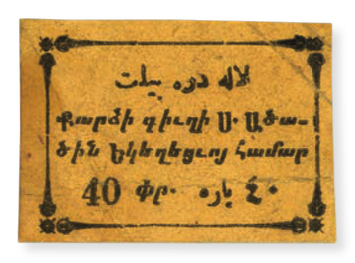 لاله دره بيلت
Քարձի գիւղի Ս. Ածա-
ծին Եկեղեցւոյ Համար
40 Փր. ٤٠ پاره